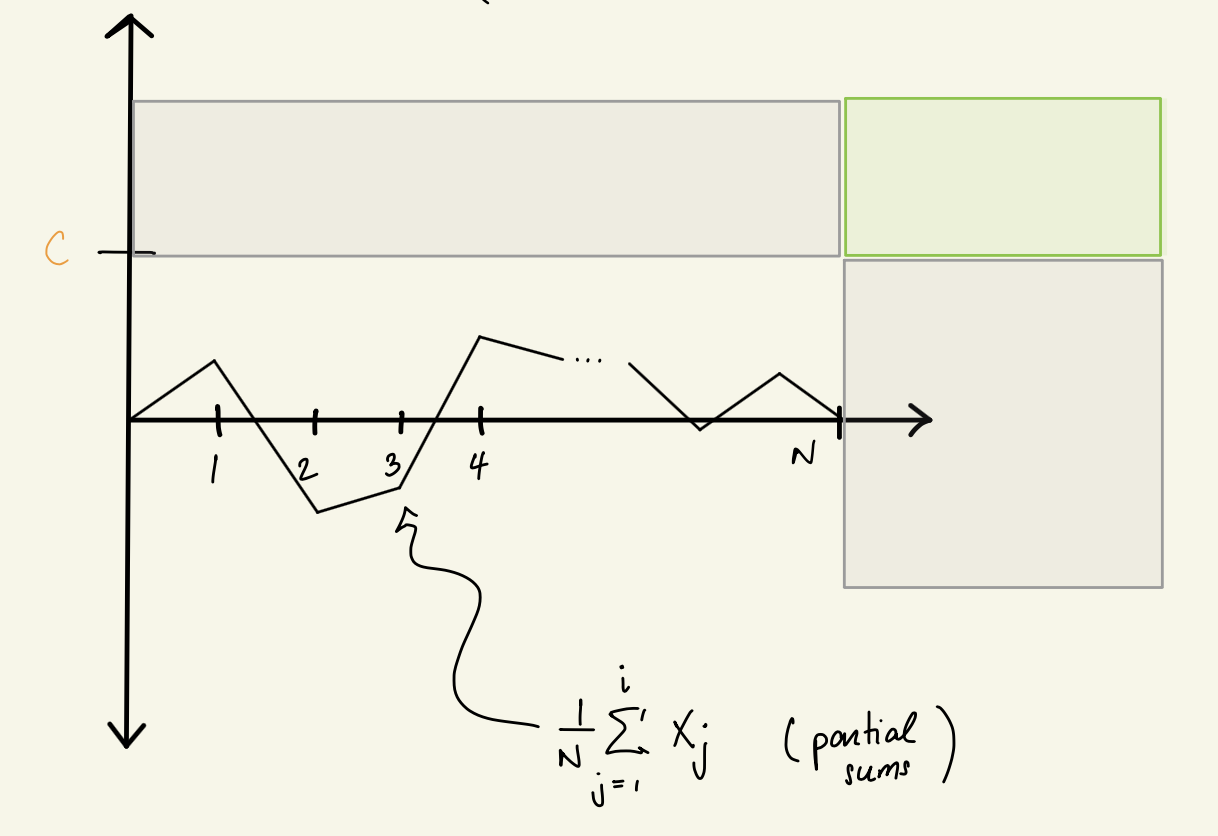 C
1 2 3 4 ... N
1/N ∑_{j=1}^{i} X_j (partial sums)